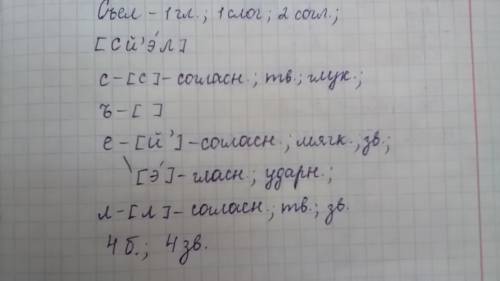 Съел - 1 гл.; 1 слог; 2 согл.;
[с й' э́ л]
с - [с] - согласн.; тв.; глух.;
ъ - [ ]
е - [й'] - согласн.; мягк.; зв.;
\ [э́] - гласн.; ударн.;
л - [л] - согласн.; тв.; зв.
4 б.; 4 зв.